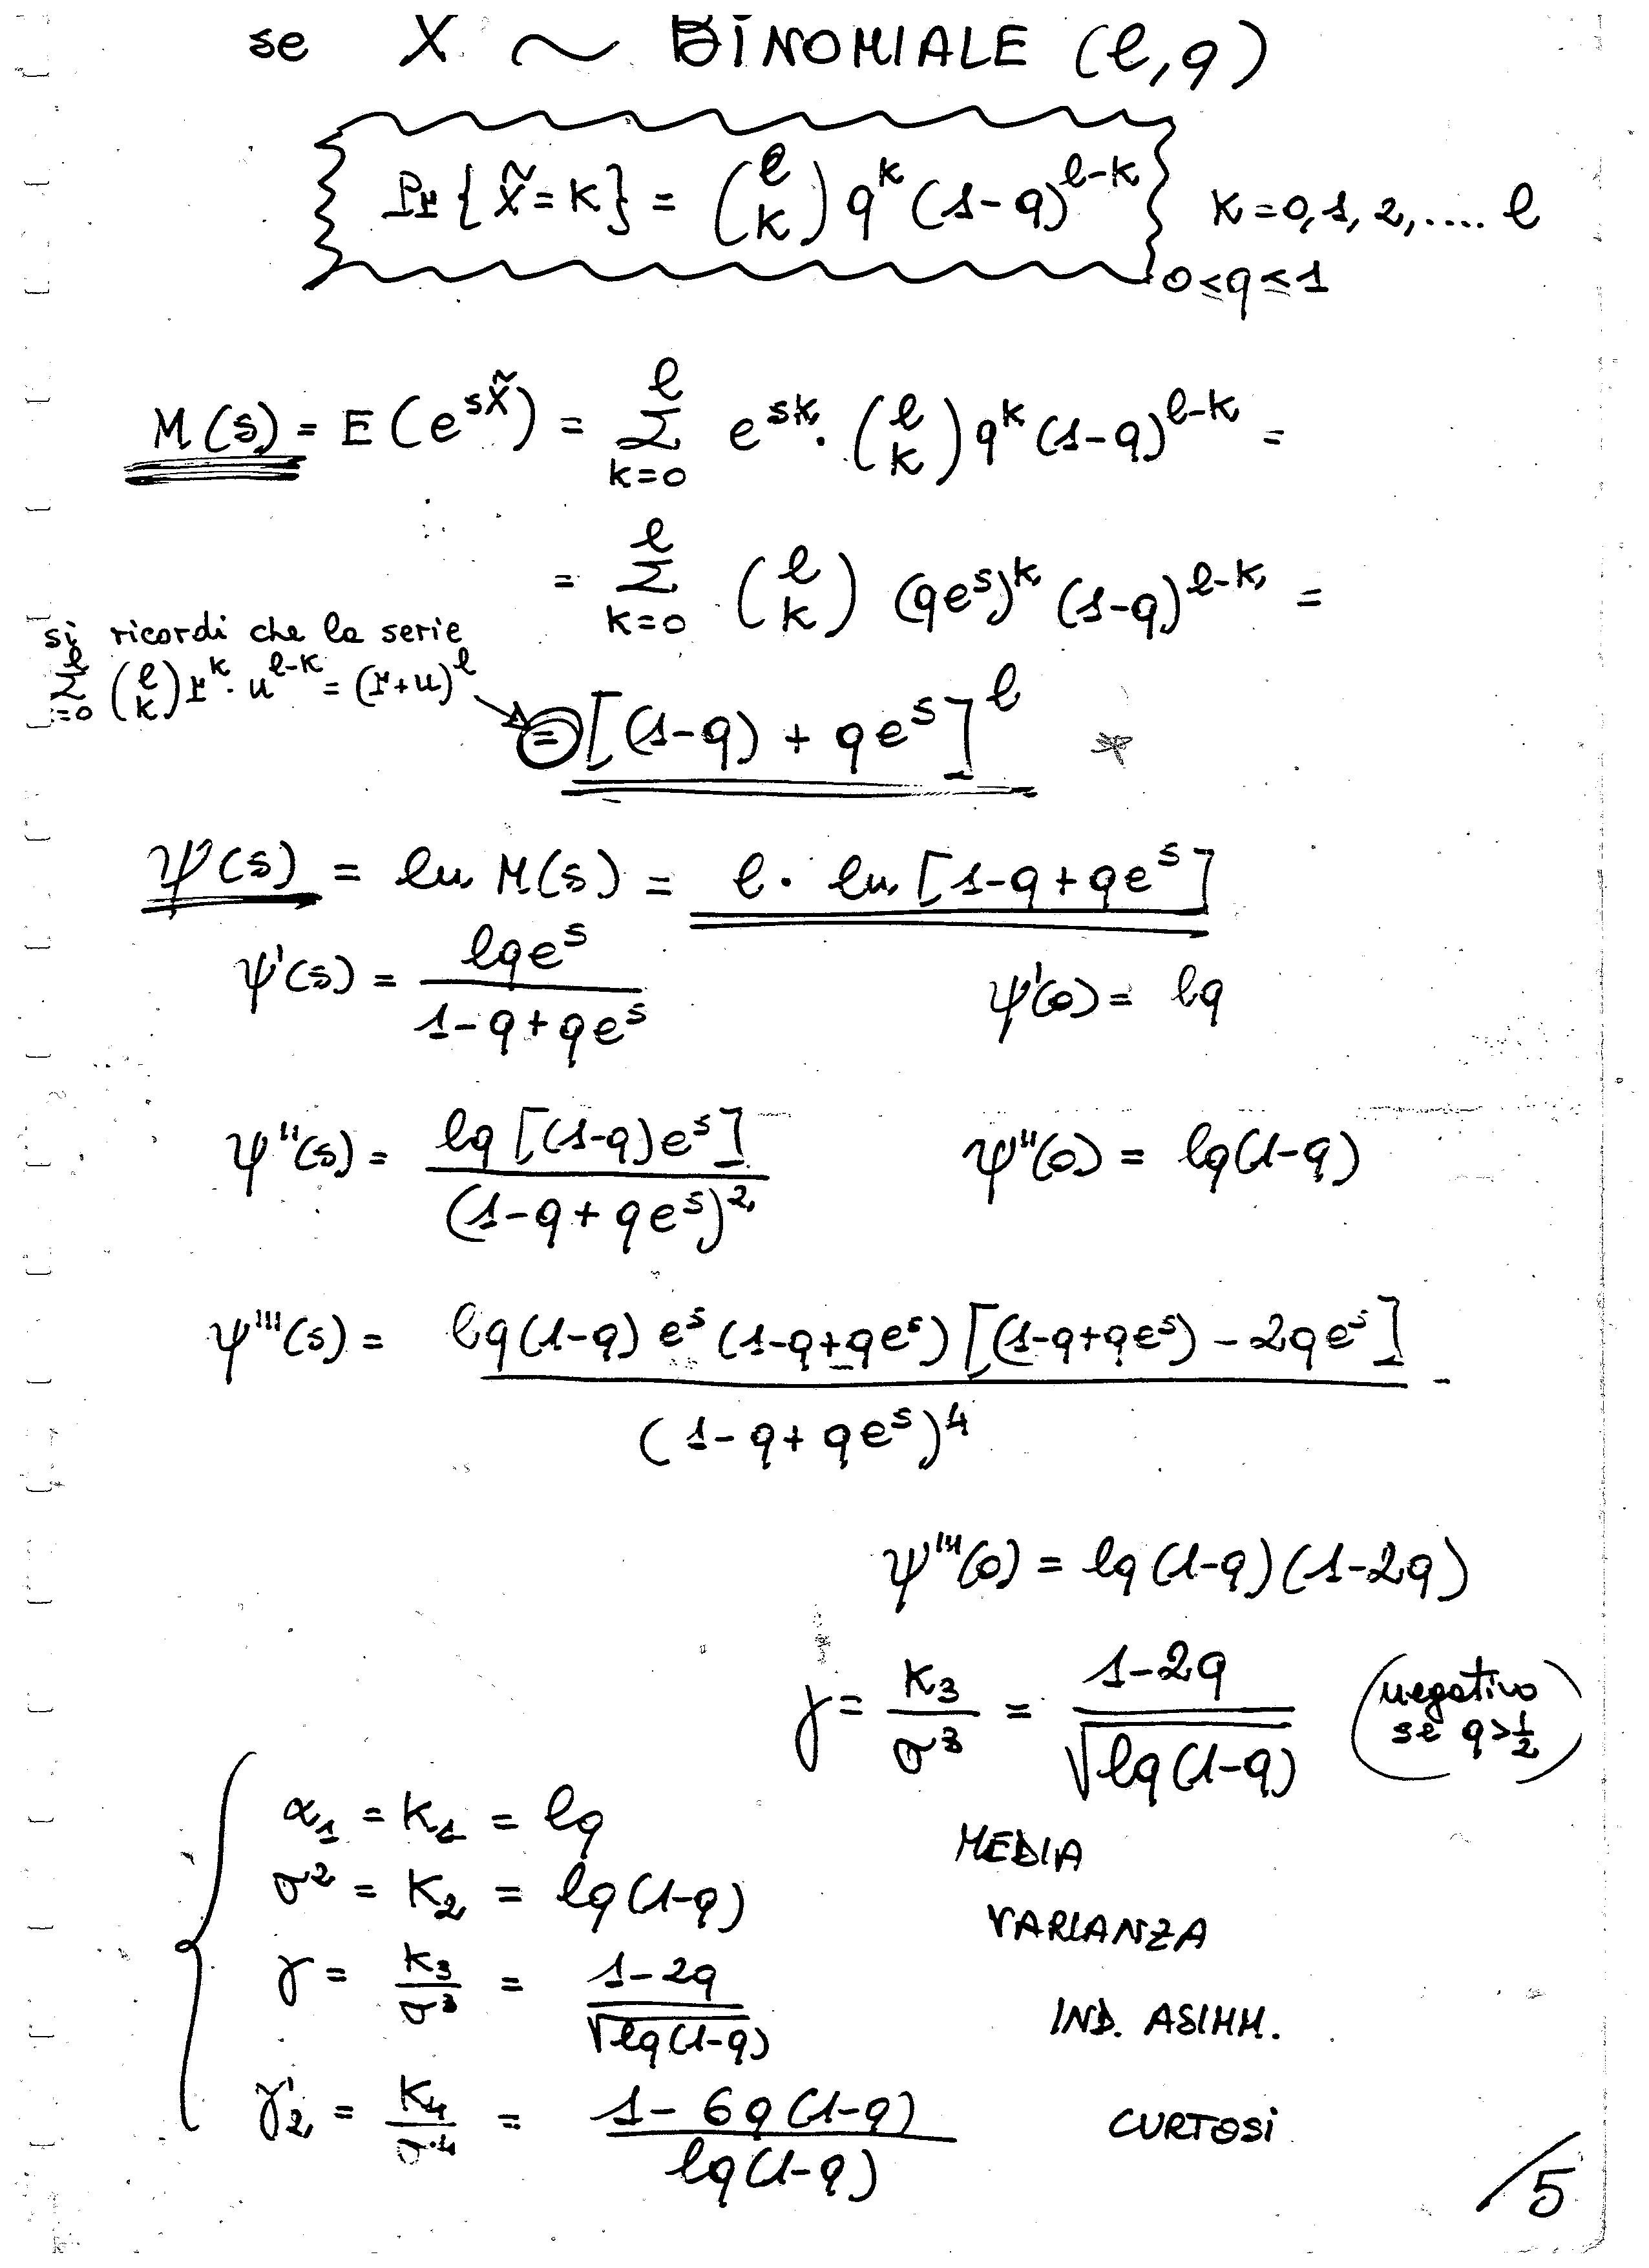 se X ~ BINOMIALE (l,q)
Pr { X̃ = K } = (l K) q^K (1-q)^{l-K} K = 0, 1, 2, .... l
0 ≤ q ≤ 1
M(s) = E(e^{sX̃}) = Σ_{K=0}^{l} e^{sk} · (l K) q^K (1-q)^{l-K} =
= Σ_{K=0}^{l} (l K) (qe^s)^K (1-q)^{l-K} =
si ricordi che la serie
Σ_{=0}^{l} (l K) r^K · u^{l-K} = (r+u)^l
= [(1-q) + qe^s]^l *
ψ(s) = ln M(s) = l · ln [1-q+qe^s]
ψ'(s) = lqe^s / (1-q+qe^s) ψ'(0) = lq
ψ''(s) = lq [(1-q)e^s] / (1-q+qe^s)^2 ψ''(0) = lq(1-q)
ψ'''(s) = lq(1-q) e^s (1-q+qe^s) [(1-q+qe^s) - 2qe^s] / (1-q+qe^s)^4
ψ'''(0) = lq (1-q) (1-2q)
γ = K_3 / σ^3 = (1-2q) / √(lq(1-q)) (negativo se q>1/2)
α_1 = K_1 = lq MEDIA
σ^2 = K_2 = lq(1-q) VARIANZA
γ = K_3 / σ^3 = (1-2q) / √(lq(1-q)) IND. ASIMM.
γ_2 = K_4 / σ^4 = (1-6q(1-q)) / lq(1-q) CURTOSI
/5